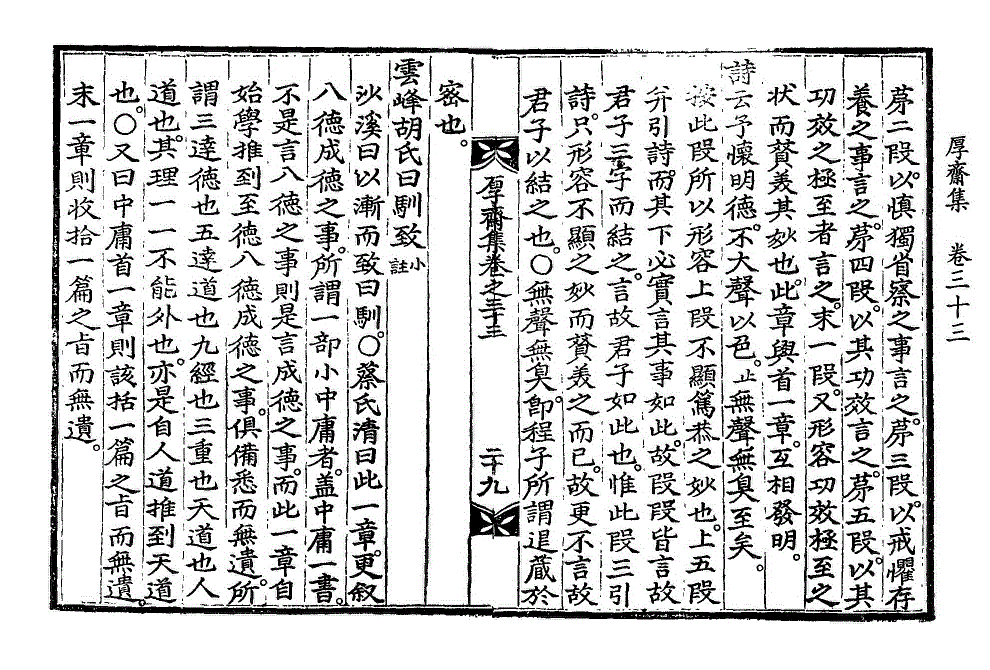 厚齋集　卷三十三
苐二段。以愼獨省察之事言之。苐三段。以戒懼存
養之事言之。苐四段。以其功效言之。苐五段。以其
功效之極至者言之。末一段。又形容功效極至之
状而賛美其妙也。此章與首一章。互相發明。
詩云予懷明德。不大聲以色。止無聲無臭至矣。
按此段所以形容上段不顯篤恭之妙也。上五段
幷引詩。而其下必實言其事如此。故段段皆言故
君子三字而結之。言故君子如此也。惟此段三引
詩。只形容不顯之妙而賛美之而已。故更不言故
君子以結之也。〇無聲無臭。卽程子所謂退藏於
密也。
厚齋集卷之三十三
二十九
雲峰胡氏曰馴致小註
沙溪曰以漸而致曰馴。〇蔡氏清曰此一章。更叙
八德成德之事。所謂一部小中庸者。盖中庸一書。
不是言八德之事則是言成德之事。而此一章自
始學推到至德八德成德之事。俱備悉而無遺。所
謂三達德也五達道也九經也三重也天道也人
道也。其理一一不能外也。亦是自人道推到天道
也。〇又曰中庸首一章則該括一篇之旨而無遺。
末一章則收拾一篇之旨而無遺。